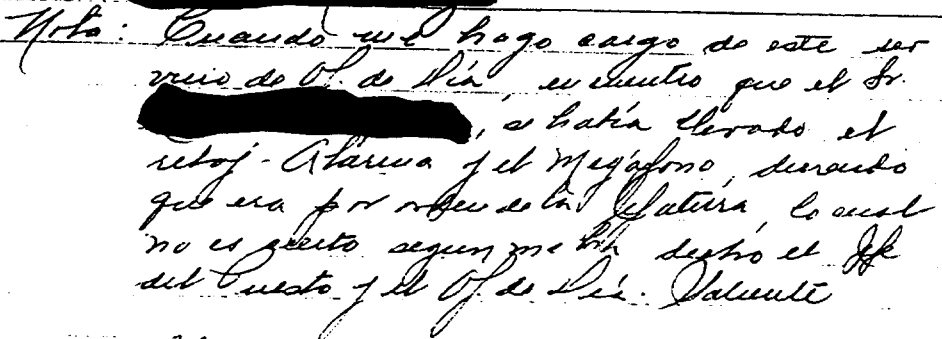 Nota: Cuando me hago cargo de este ser
vicio de Of. de Día, encuentro que el Sr.
, se había llevado el
reloj-Alarma y el Megáfono, diciendo
que era por orden de la Jefatura, lo cual
no es cierto segun me ha dicho el Jefe
del Puesto y el Of. de Día. Valiente